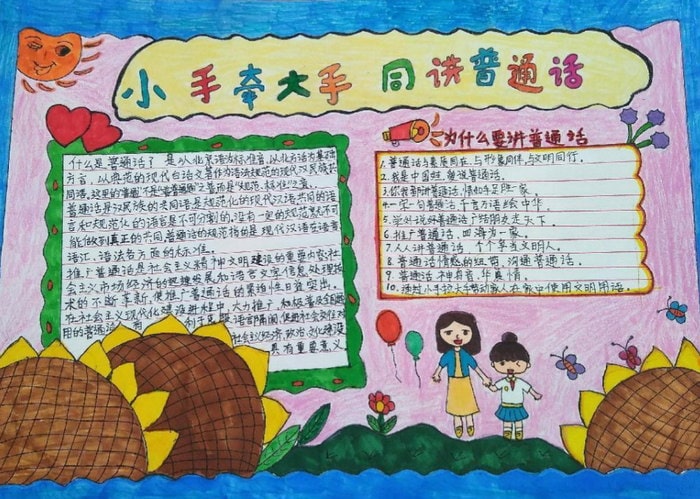 小手牵大手 同讲普通话
什么是普通话? 是以北京语音为标准音,以北方话为基础
方言,以典范的现代白话文著作为语法规范的现代汉民族共
同语,这里的"普通"不是"普普通通"之普而是"规范、标准"之意。
普通话是汉民族的共同语是规范化的现代汉语共同的语
言和规范化的语言是不可分割的,没有一定的规范就不可
能做到真正的共同,普通话的规范指的是现代汉语在语音
语汇、语法各方面的标准。
推广普通话是社会主义精神文明建设的重要内容;社
会主义市场经济的迅速发展和语言文字信息处理技
术的不断革新,使推广普通话的紧迫性日益突出。
在社会主义现代化建设进程中,大力推广、积极普及全国通
用的普通话,有利于克服语言隔阂,促进社会交往,对
社会主义经济、政治、文化建设
具有重要意义
为什么要讲普通话
1. 普通话与素质同在,与形象同伴,与文明同行。
2. 我是中国娃,普说普通话。
3. 你我都讲普通话,情如手足胜一家。
4. 一字一句普通话,千言万语总中华。
5. 学好说好普通话,广结朋友走天下。
6. 推广普通话,四海为一家。
7. 人人讲普通话,个个争当文明人。
8. 普通话情感的纽带,沟通普通话。
9. 普通话,神舟音,华夏情。
10. 通过小手拉大手带动家人在家中使用文明用语。